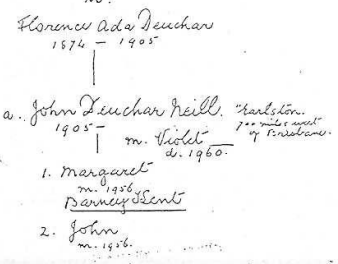 Florence Ada Deuchar
1874 - 1905
a. John Deuchar Neill. "Earlston.
1905 - 700 miles west
m. Violet of Brisbane.
d. 1960.
1. Margaret
m. 1956
Barney Kent
2. John
m. 1956.